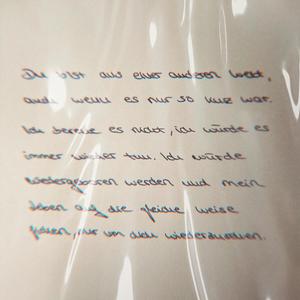 Du bist aus einer anderen Welt,
auch wenn es nur so kurz war.
Ich bereue es nicht, ich würde es
immer wieder tun. Ich würde
wiedergeboren werden und mein
Leben auf die gleiche Weise
leben, nur um dich wiederzusehen.